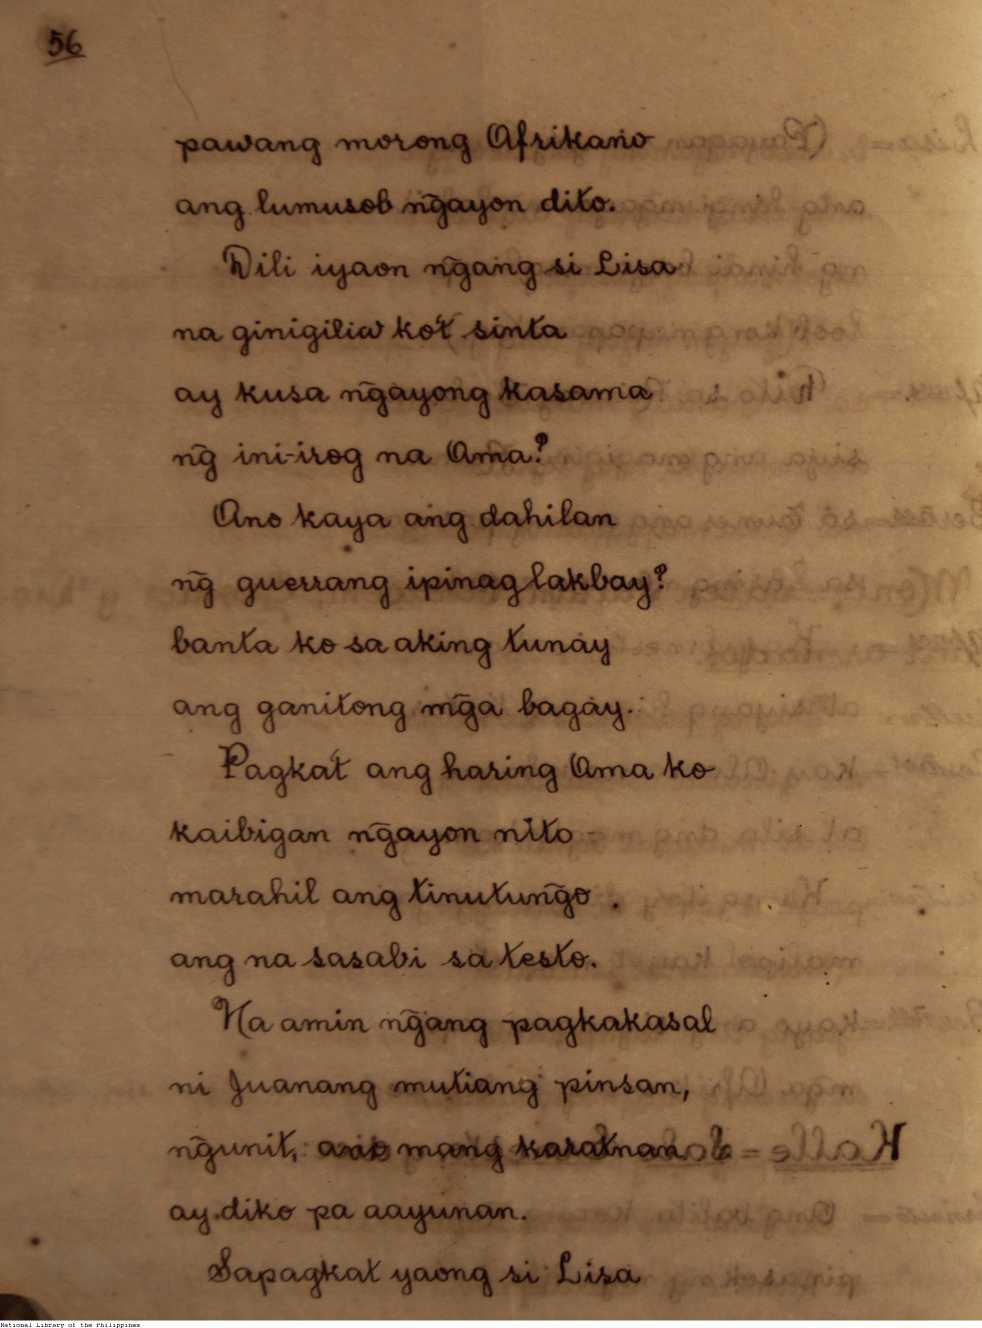 56
pawang morong Afrikano
ang lumusob n͠gayon dito.
Dili iyaon n͠gang si Lisa
na ginigiliw ko't sinta
ay kusa n͠gayong kasama
n͠g ini-irog na Ama?
Ano kaya ang dahilan
n͠g guerrang ipinaglakbay?
banta ko sa aking tunay
ang ganitong m͠ga bagay.
Pagka't ang haring Ama ko
kaibigan n͠gayon nito
marahil ang tinutun͠go.
ang na sasabi sa testo.
Na amin n͠gang pagkakasal
ni Juanang mutiang pinsan,
n͠gunit, ano mang karatnan
ay diko pa aayunan.
Sapagkat yaong si Lisa
National Library of the Philippines